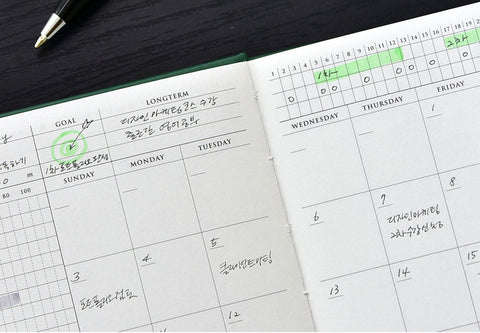 GOAL
LONGTERM
디자인 마케팅코스 수강
m
80 100
SUNDAY
MONDAY
TUESDAY
3
4
5
클라이언트미팅
포트폴리오 검토
12
1 2 3 4 5 6 7 8 9 10 11 12 13 14 15 16 17 18 19
1차
2차
WEDNESDAY
THURSDAY
FRIDAY
1
6
7
8
디자인마케팅
2차 수강신청
13
14
15